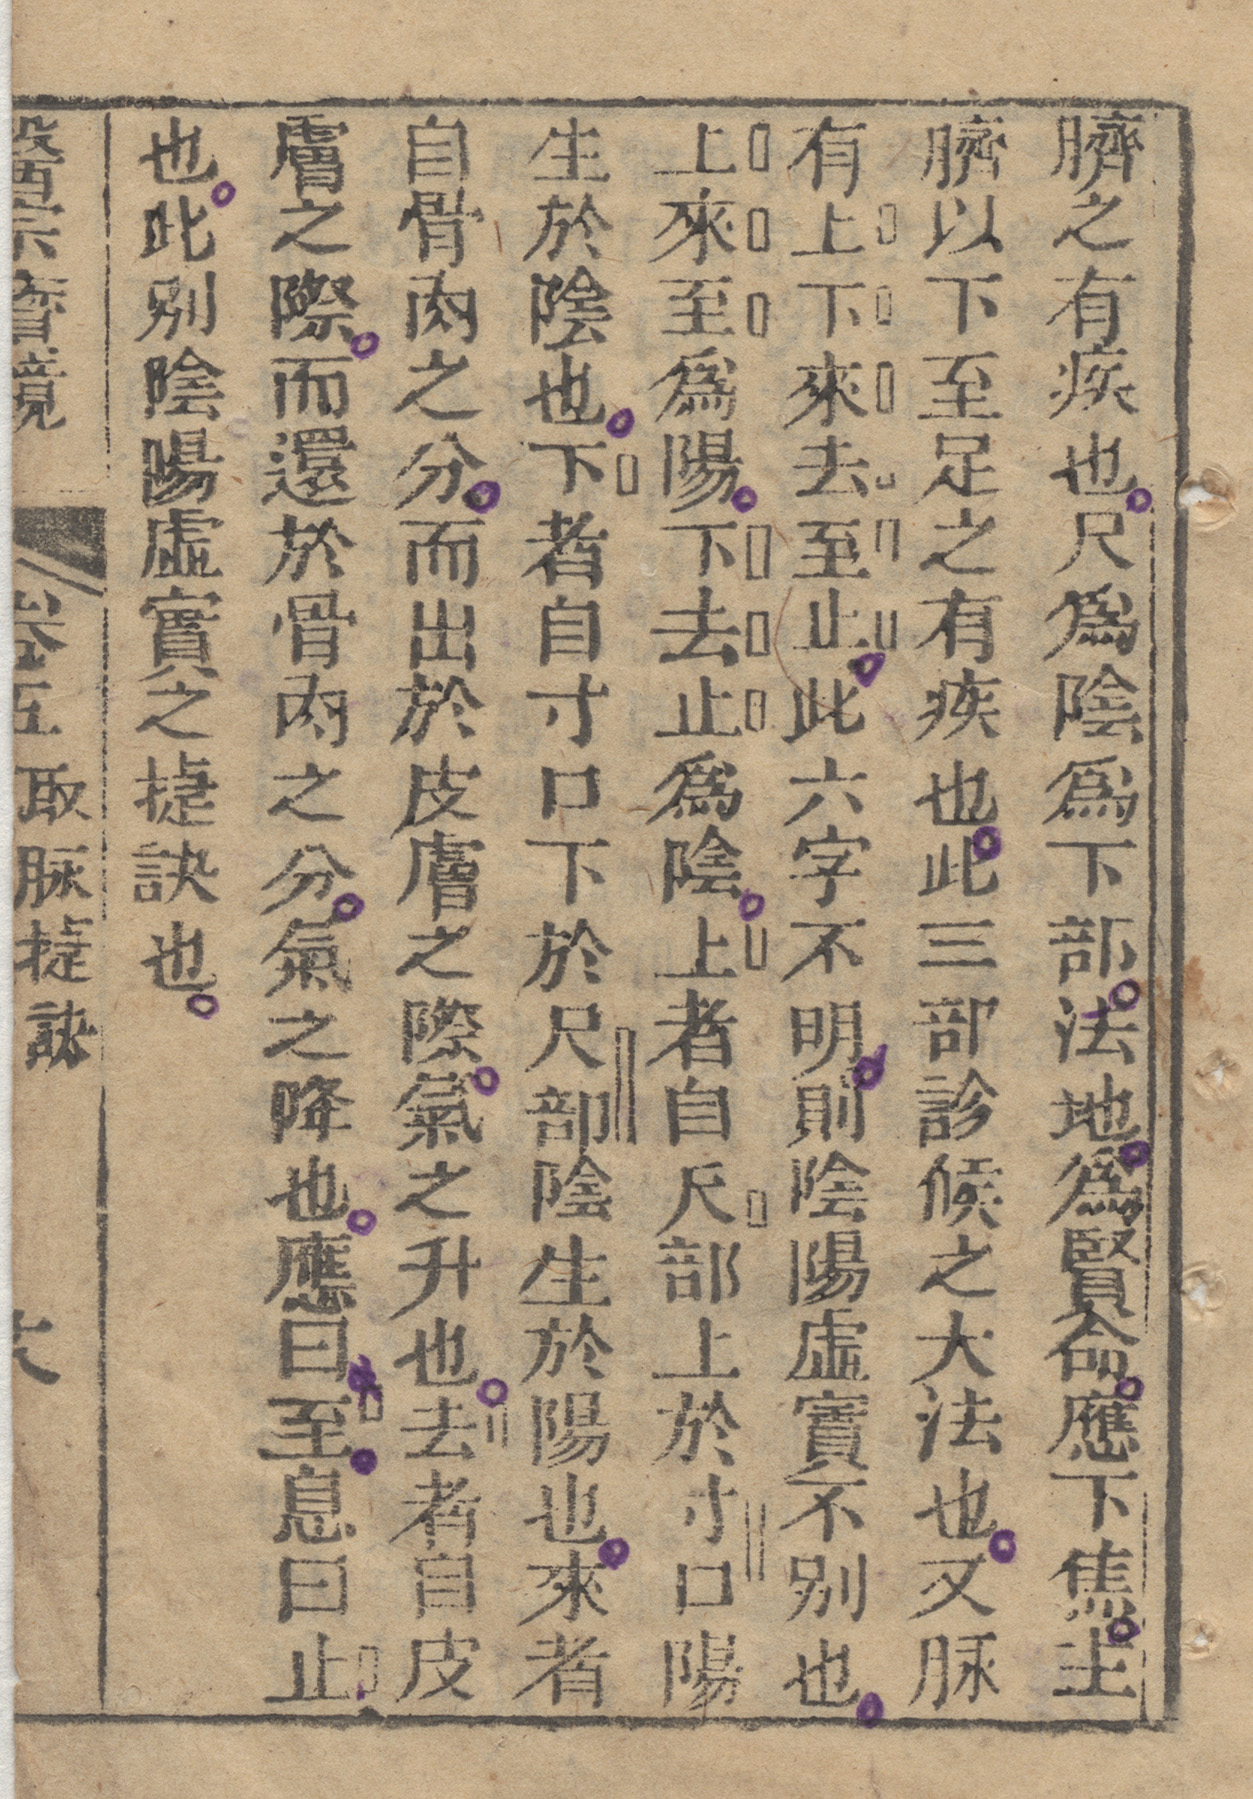 臍之有疾也。尺爲陰爲下部。法地。爲賢命。應下焦。主
臍以下至足之有疾也。此三部診候之大法也。又脉
有上下來去至止。此六字不明。則陰陽虛實不别也。
上來至爲陽。下去止爲陰。上者自尺部上於寸口陽
生於陰也。下者自寸口下於尺部陰生於陽也。來者
自骨肉之分。而出於皮膚之際。氣之升也。去者自皮
膚之際。而還於骨肉之分。氣之降也。應曰至。息曰止
也。此别陰陽虛實之捷訣也。
醫宗寶鏡 卷五 取脉捷訣